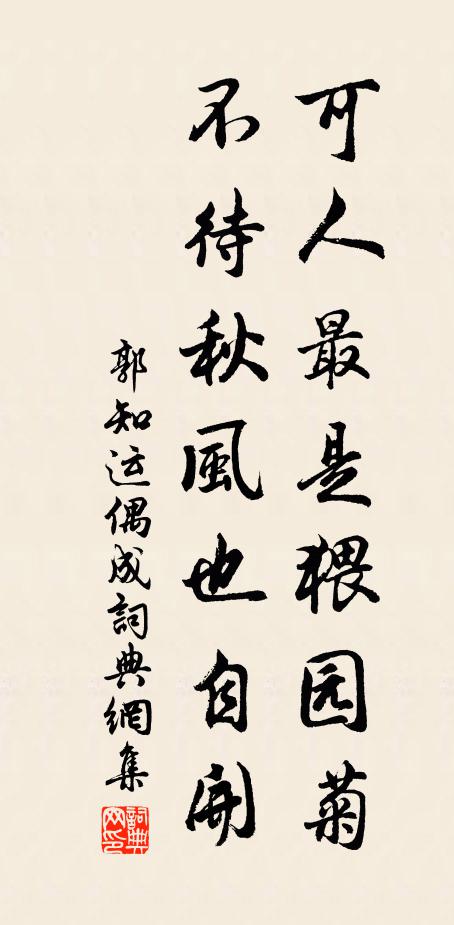 可人最是猥园菊
不待秋風也自開
郭知运偶成詞典網集
詞典网印